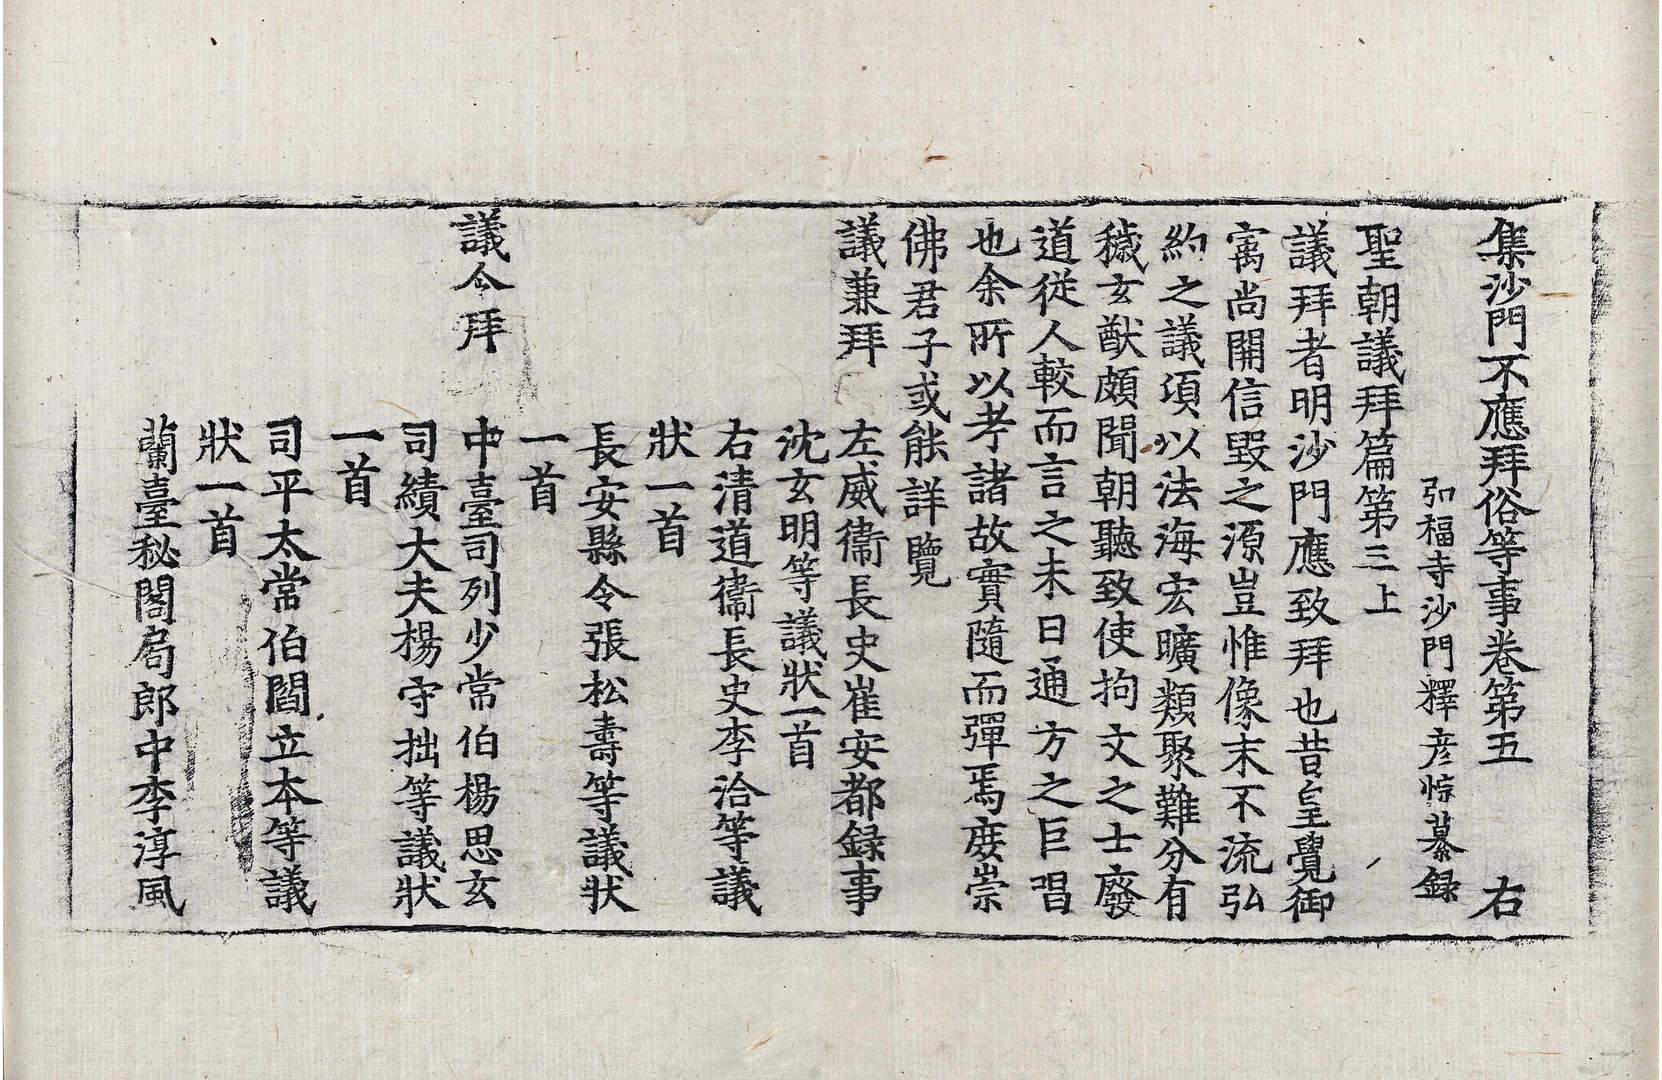 集沙門不應拜俗等事卷第五　右
弘福寺沙門釋彦悰纂録
聖朝議拜篇第三上
議拜者明沙門應致拜也昔皇覺御
寓尚開信毀之源豈惟像末不流弘
約之議項以法海宏曠類聚難分有
穢玄猷頗聞朝聽致使拘文之士廢
道從人較而言之未日通方之巨唱
也余所以考諸故實隨而彈焉庶崇
佛君子或能詳覽
議兼拜　左威衞長史崔安都録事
沈玄明等議狀一首
右清道衞長史李洽等議
狀一首
長安縣令張松壽等議狀
一首
議令拜　中臺司列少常伯楊思玄
司績大夫楊守拙等議狀
一首
司平太常伯閻立本等議
狀一首
蘭臺秘閣局郎中李淳風